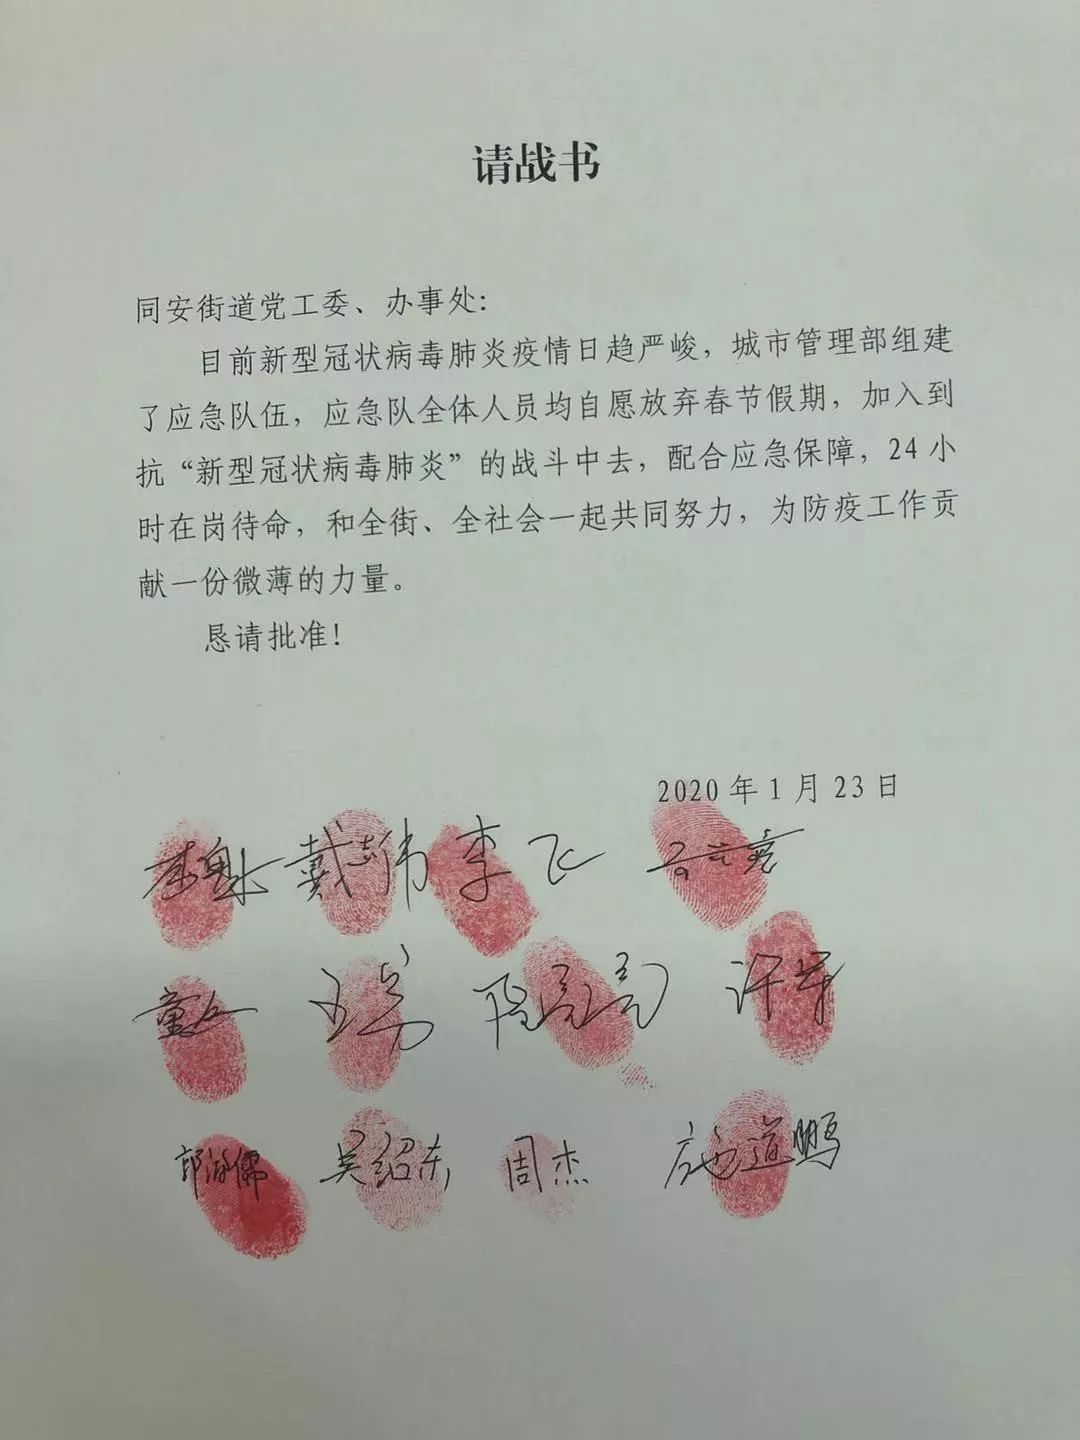 请战书
同安街道党工委、办事处:
目前新型冠状病毒肺炎疫情日趋严峻，城市管理部组建
了应急队伍，应急队全体人员均自愿放弃春节假期，加入到
抗“新型冠状病毒肺炎”的战斗中去，配合应急保障，24小
时在岗待命，和全街、全社会一起共同努力，为防疫工作贡
献一份微薄的力量。
恳请批准！
2020年1月23日
戴志伟 李飞
许军
吴绍东 周杰 施道鹏